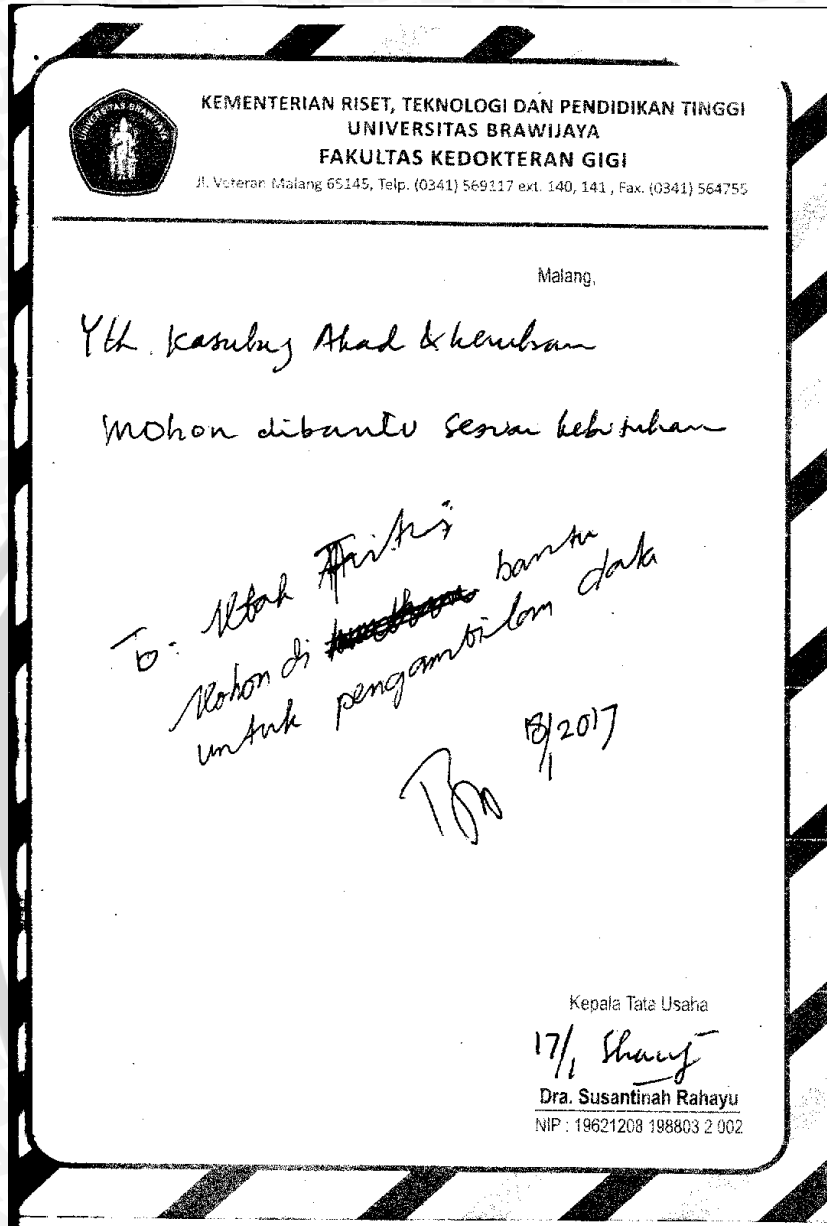 KEMENTERIAN RISET, TEKNOLOGI DAN PENDIDIKAN TINGGI
UNIVERSITAS BRAWIJAYA
FAKULTAS KEDOKTERAN GIGI
Jl. Veteran Malang 65145, Telp. (0341) 569117 ext. 140, 141 , Fax. (0341) 564755
UNIVERSITAS BRAWIJAYA
Malang,
Yth. Kasubag Akad &
Mohon dibantu sesuai kebutuhan
To: Mbah
Mohon di bantu
untuk pengambilan data
18/1 2017
Kepala Tata Usaha
17/1
Dra. Susantinah Rahayu
NIP : 19621208 198803 2 002